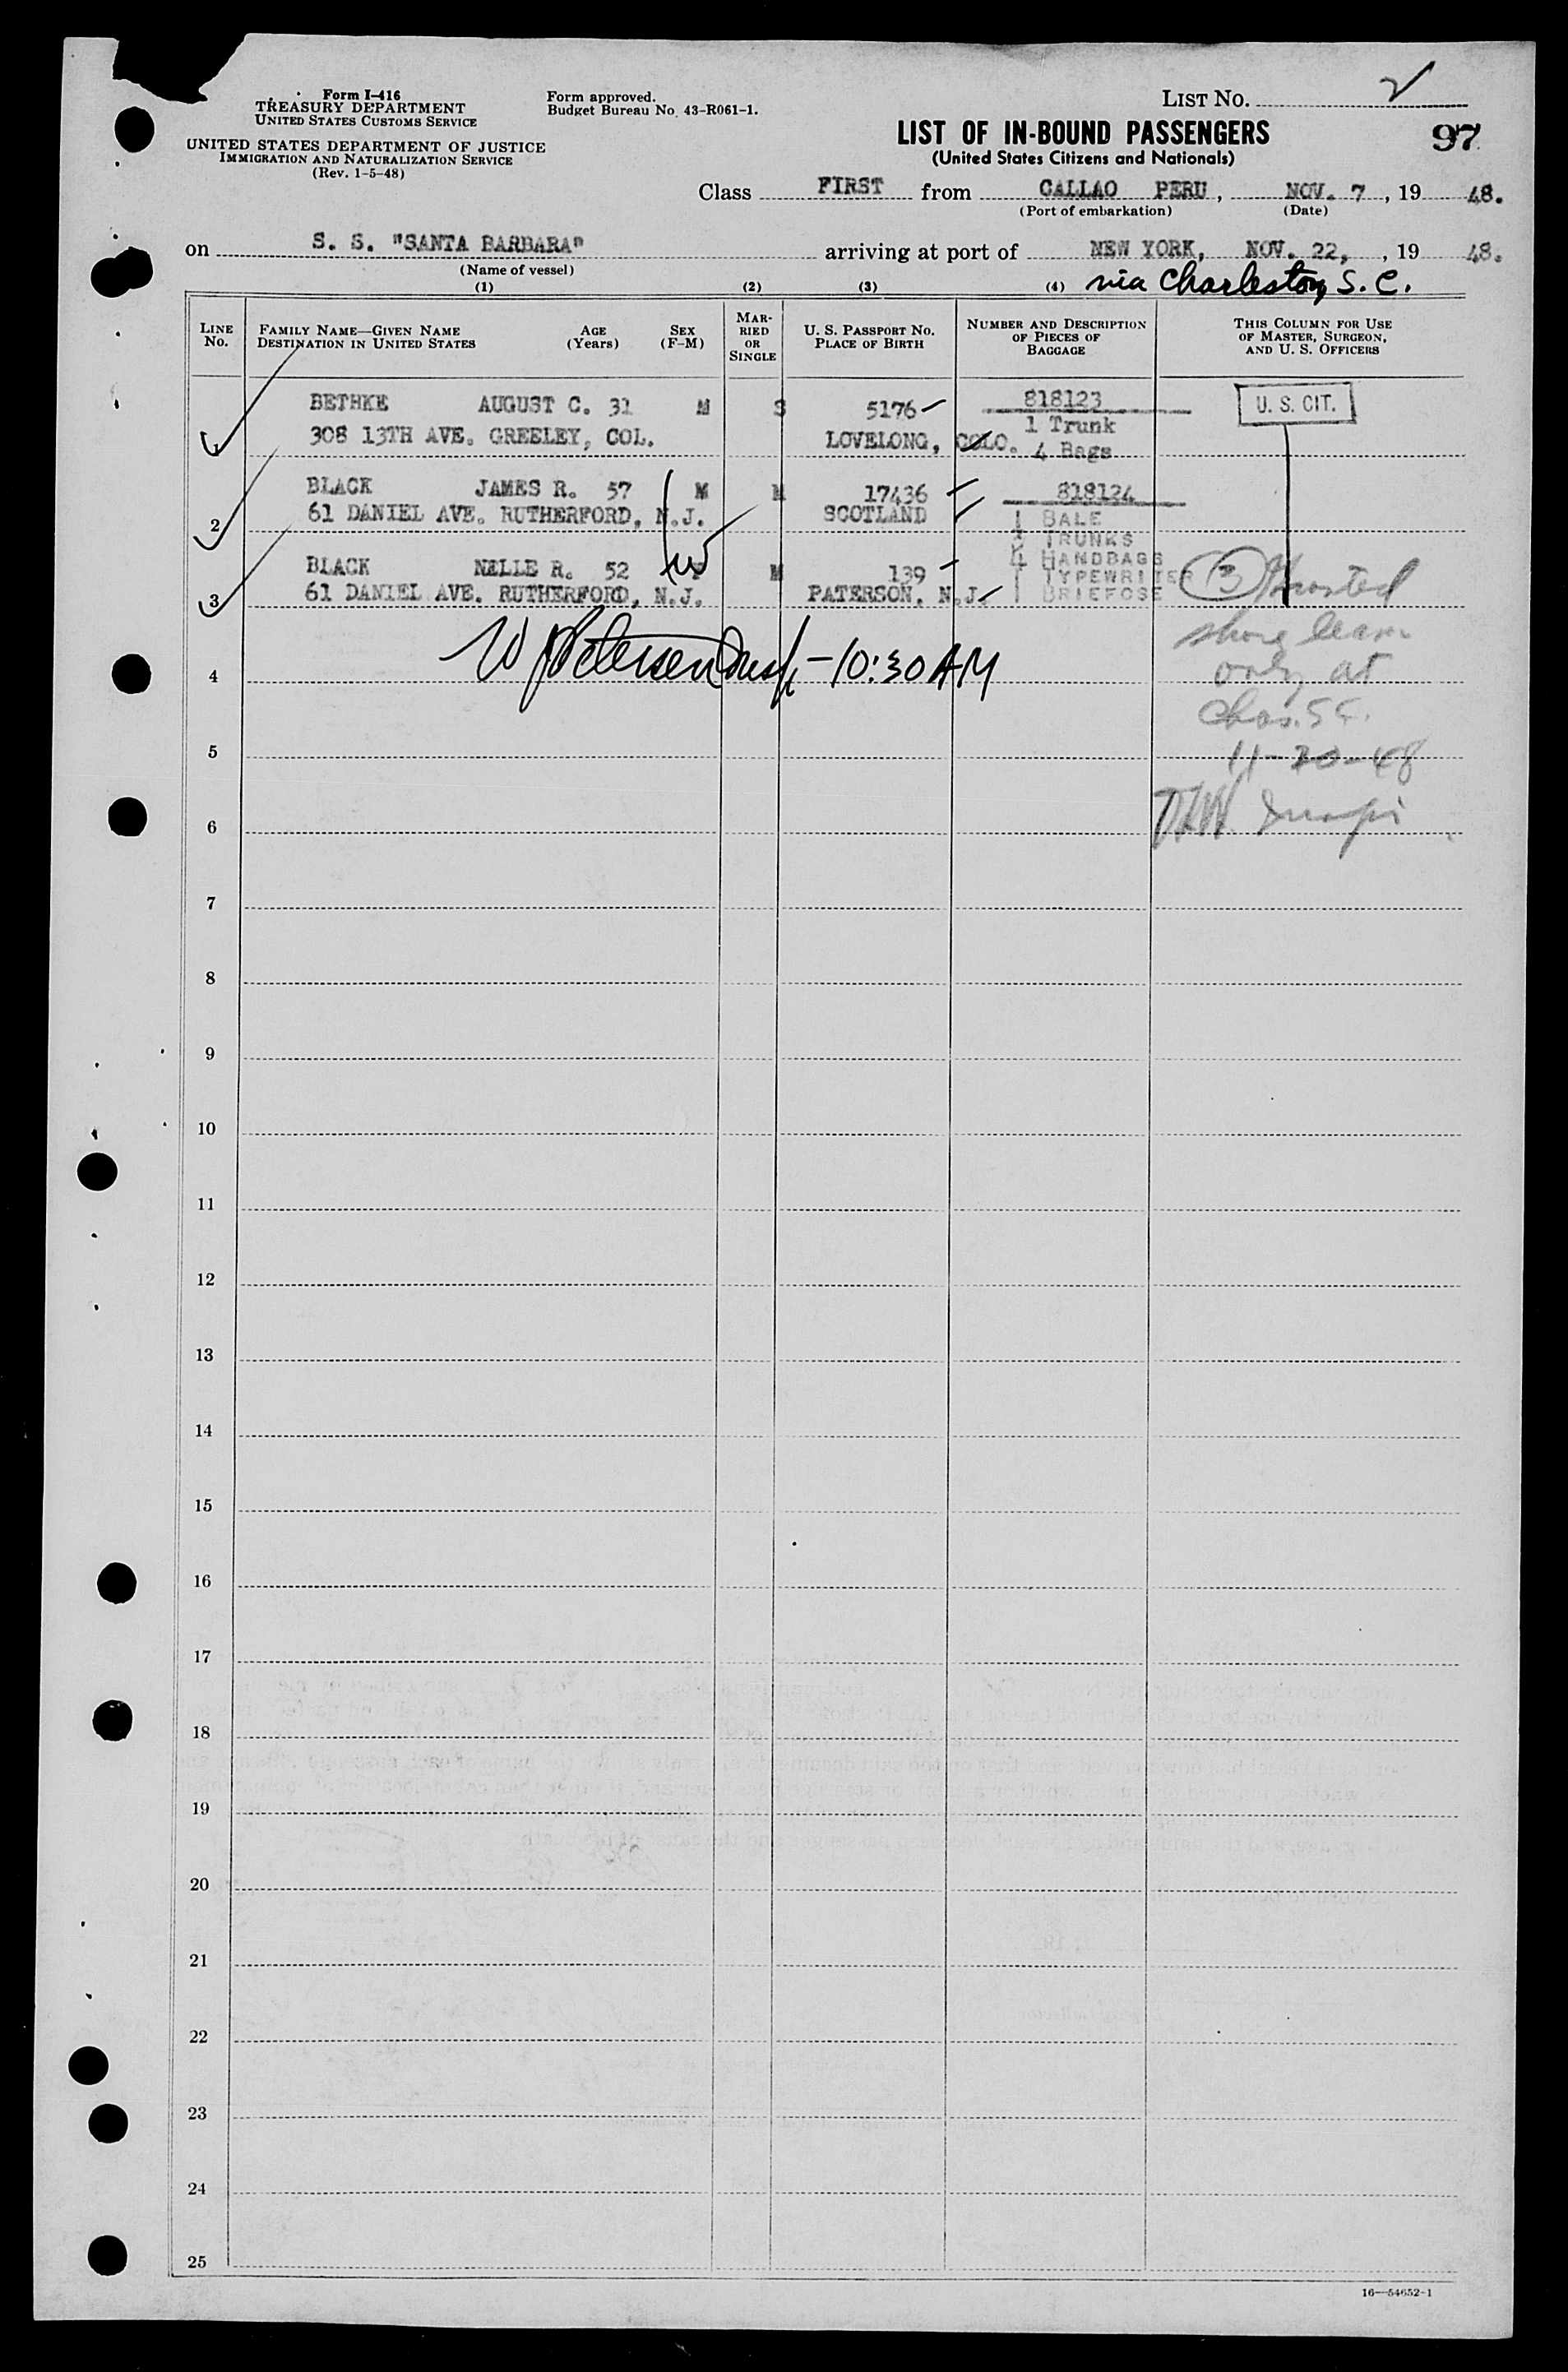 Form I-416
TREASURY DEPARTMENT
UNITED STATES CUSTOMS SERVICE
UNITED STATES DEPARTMENT OF JUSTICE
IMMIGRATION AND NATURALIZATION SERVICE
(Rev. 1-5-48)
Form approved.
Budget Bureau No. 43-R061-1.
LIST NO. 2
LIST OF IN-BOUND PASSENGERS
97
(United States Citizens and Nationals)
Class FIRST from CALLAO PERU, NOV. 7, 19 48.
(Port of embarkation) (Date)
on S. S. "SANTA BARBARA" arriving at port of NEW YORK, NOV. 22, , 19 48.
(Name of vessel)
via Charleston, S. C.
(1) (2) (3) (4)
LINE No. FAMILY NAME—GIVEN NAME DESTINATION IN UNITED STATES AGE (Years) SEX (F-M) MARRIED OR SINGLE U. S. PASSPORT NO. PLACE OF BIRTH NUMBER AND DESCRIPTION OF PIECES OF BAGGAGE THIS COLUMN FOR USE OF MASTER, SURGEON, AND U. S. OFFICERS
BETHKE AUGUST C. 31 M S 5176 818123 U. S. CIT.
1 Trunk
1 308 13TH AVE. GREELEY, COL. LOVELONG, COLO. 4 Bags
BLACK JAMES R. 57 M M 17436 818124
2 61 DANIEL AVE. RUTHERFORD, N.J. SCOTLAND 1 BALE
TRUNKS
4 HANDBAGS
BLACK NELLE R. 52 M 139 1 TYPEWRITER
3 61 DANIEL AVE. RUTHERFORD, N.J. PATERSON, N.J. 1 BRIEFCSE
(3) Granted
shore leave
only at
Chas. S C.
11-20-48
W Petersen Insp - 10:30 AM
4
5
6
7
8
9
10
11
12
13
14
15
16
17
18
19
20
21
22
23
24
25
16—54652-1